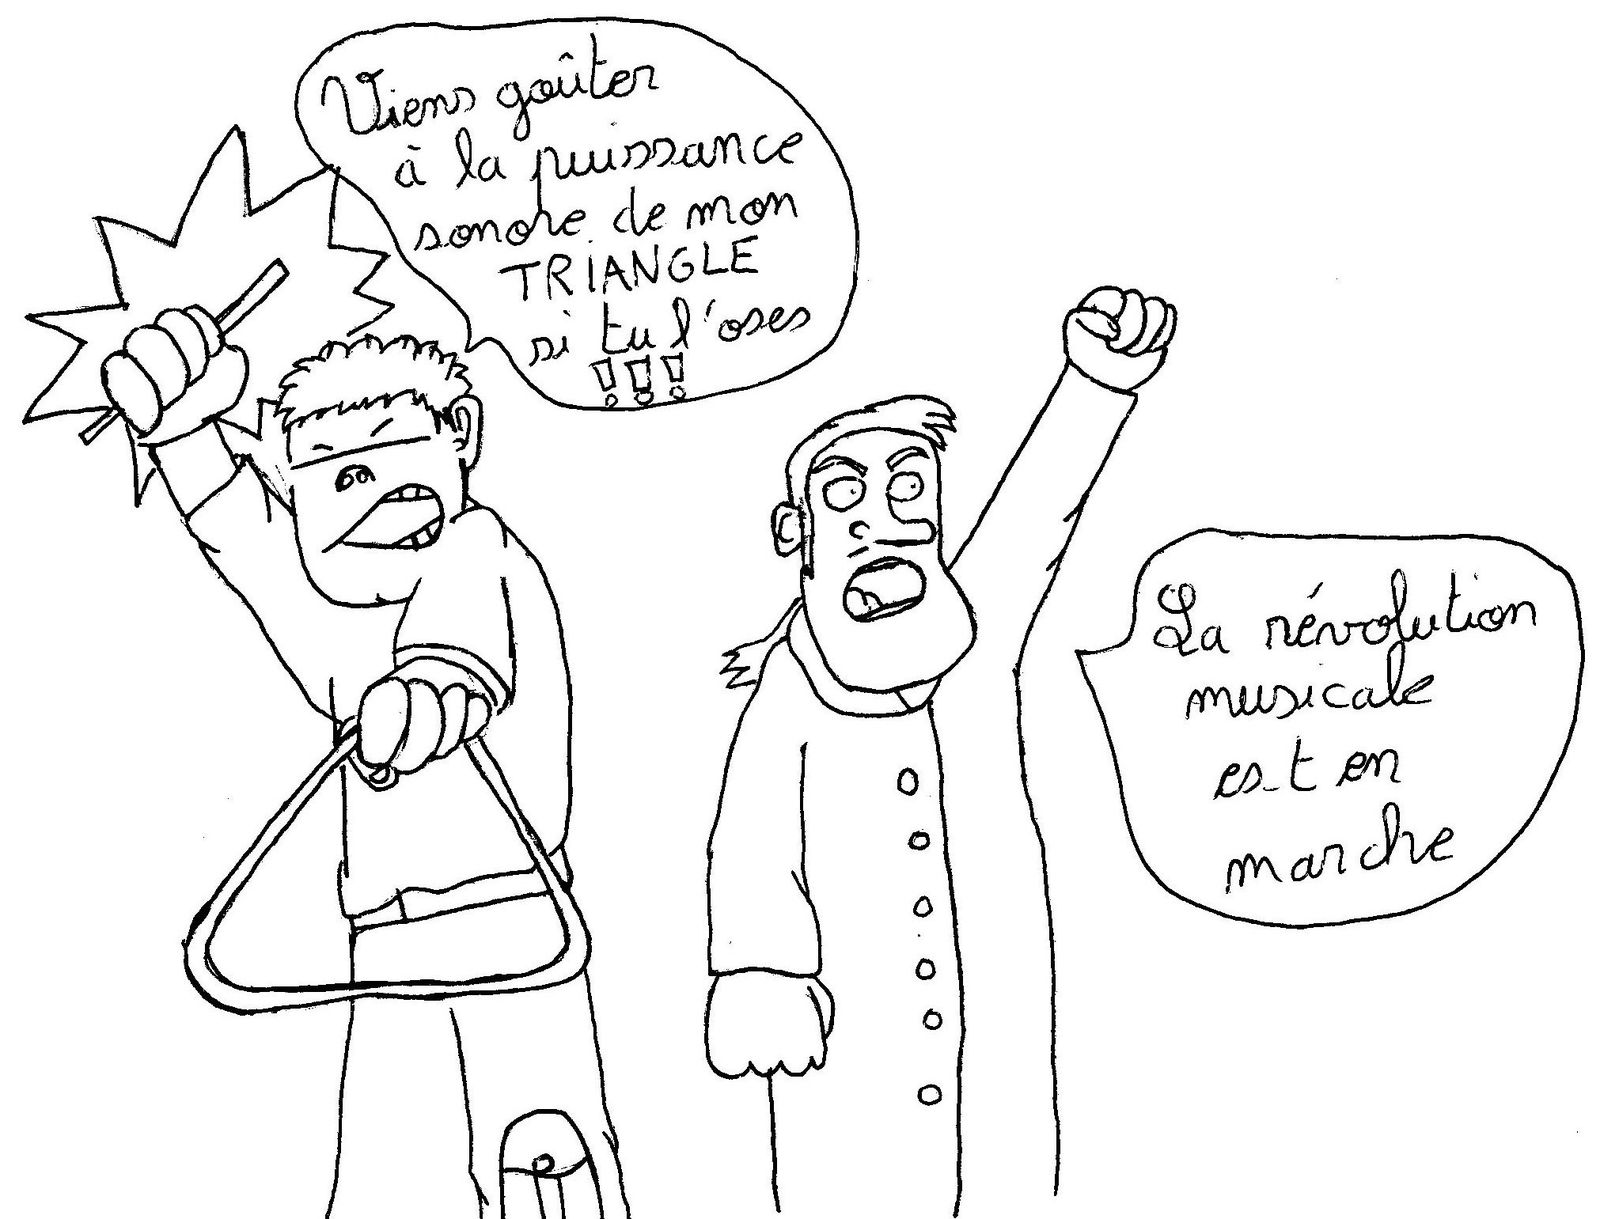 Viens goûter
à la puissance
sonore de mon
TRIANGLE
si tu l'oses
!!!
La révolution
musicale
es-t en
marche